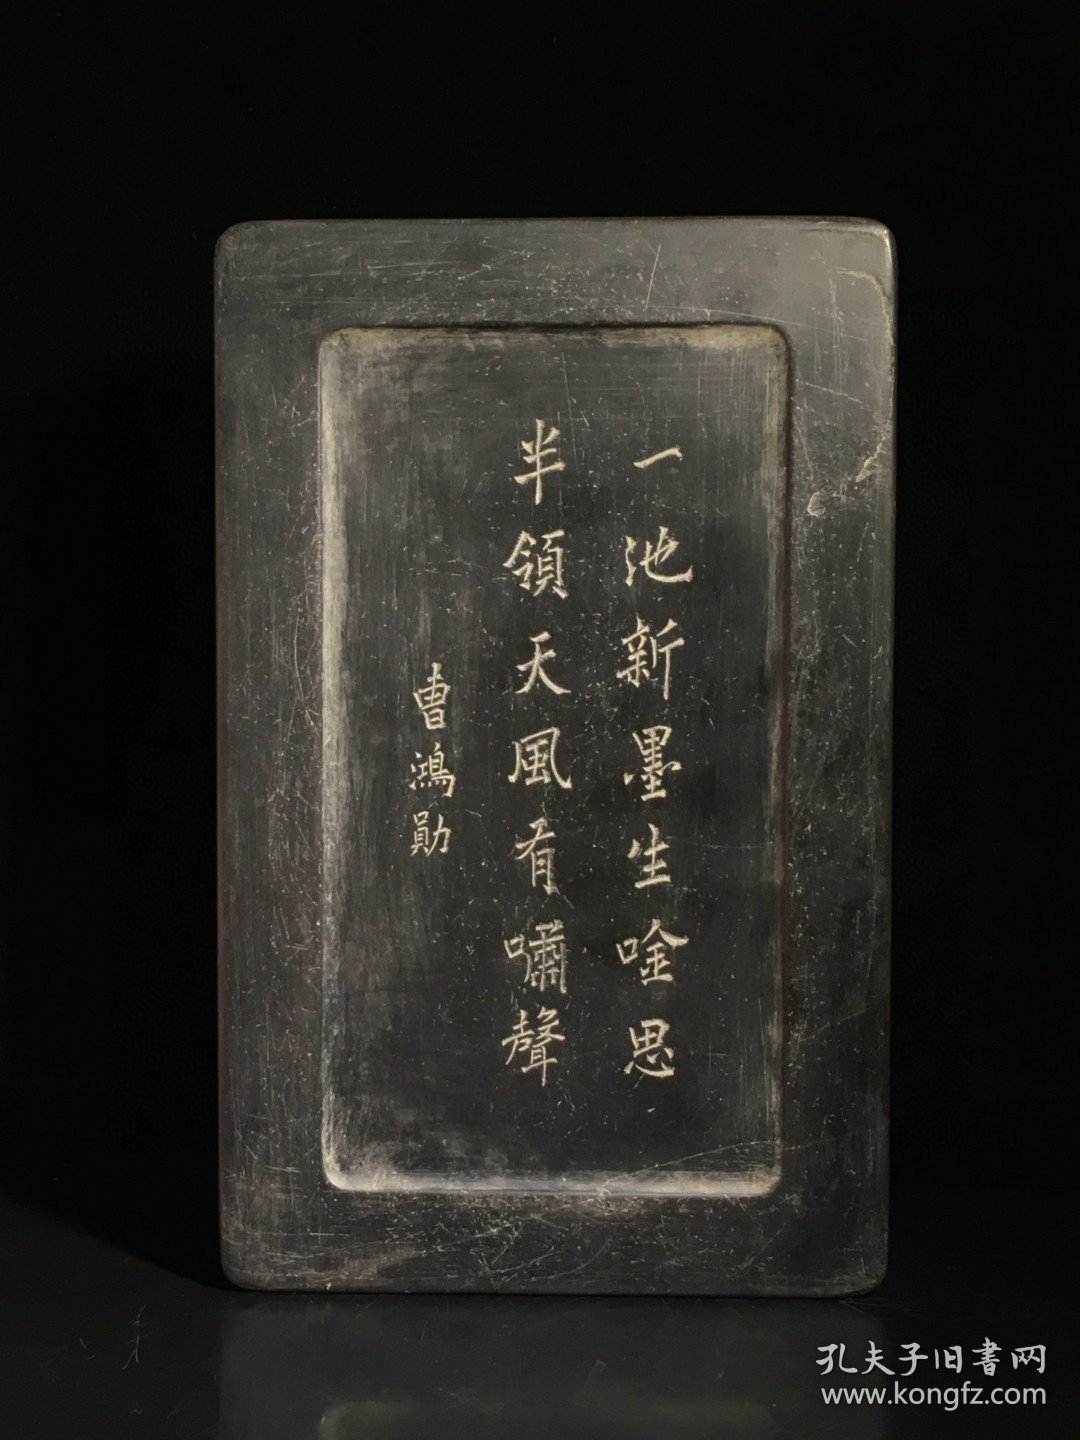 一池新墨生唫思
半領天風有嘯聲
曹鴻勛
孔夫子旧書网
www.kongfz.com